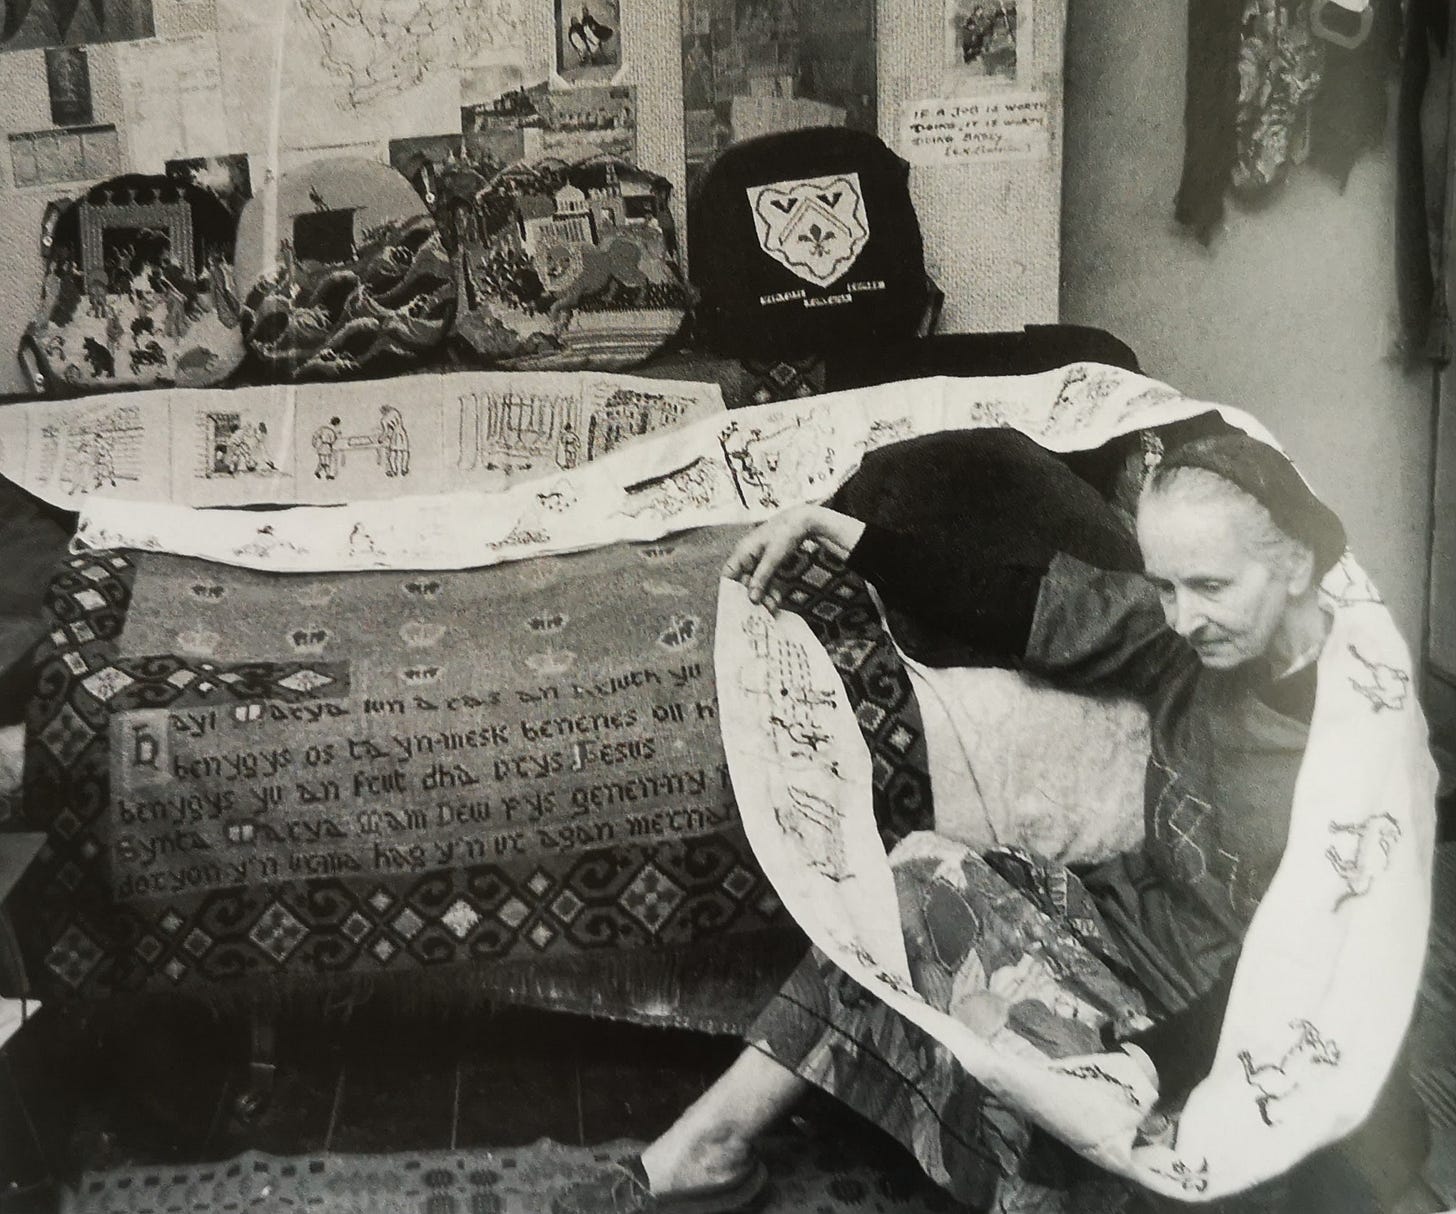 IF A JOB IS WORTH
DOING, IT IS WORTH
DOING BADLY
hayl Marya lun a ras an Arluth yu
benygys os ta yn-mesk benenes oll h
benygys yu an frut dha brys Jesus
Synta Marya Mam Dew pys genen-ny
y'n urma hag y'n ur agan merna